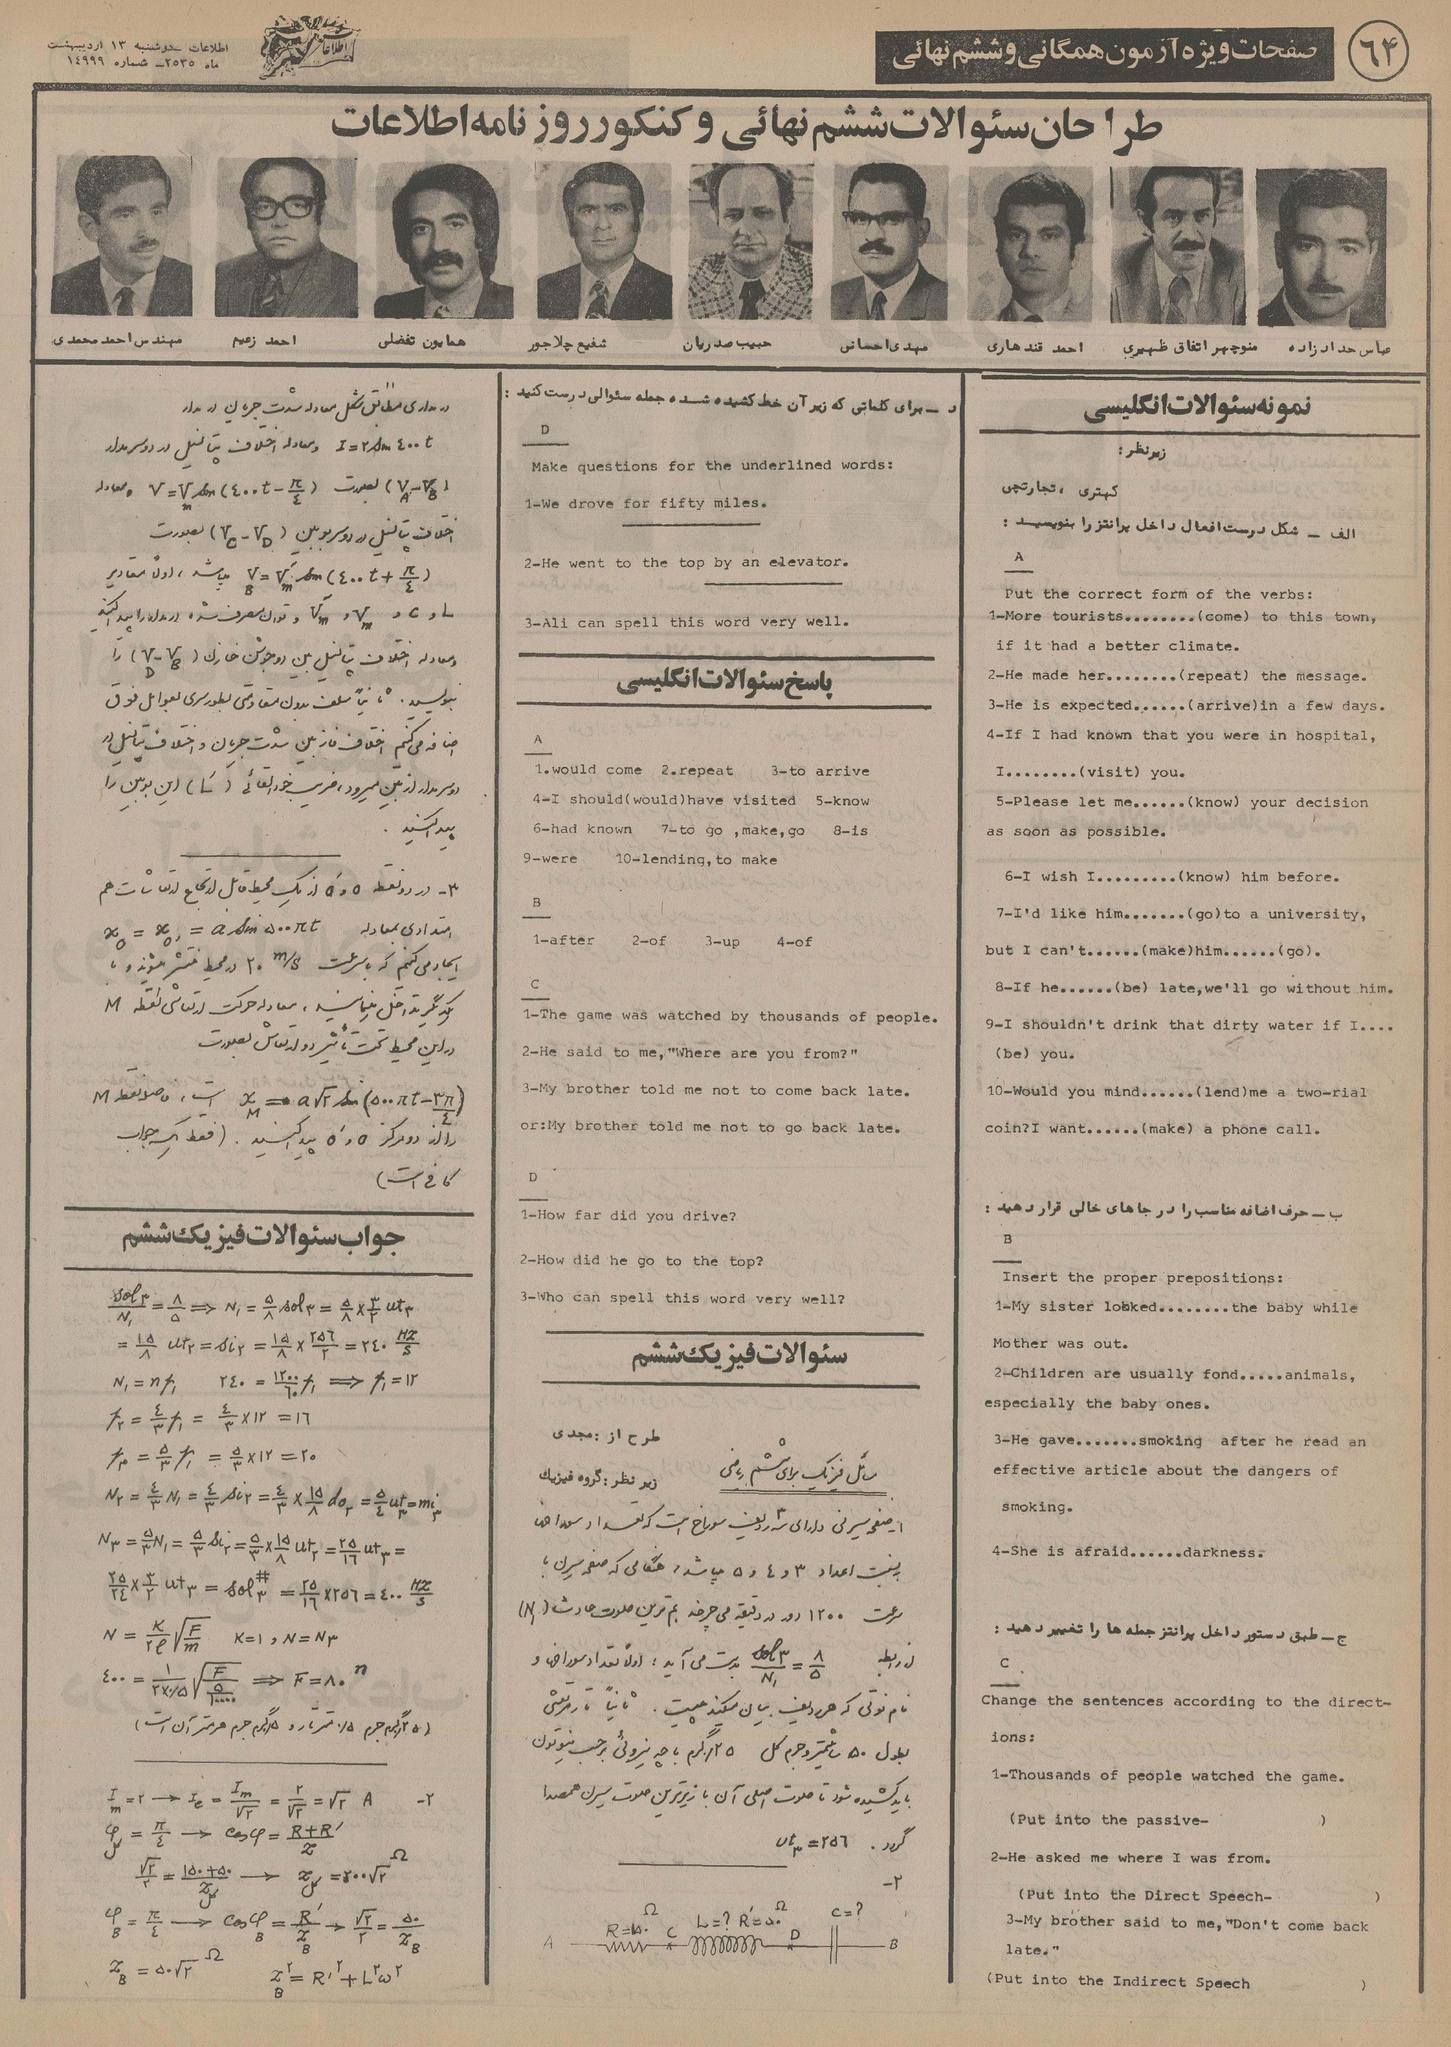 ۶۴
صفحات ویژه آزمون همگانی و ششم نهائی
اطلاعات
اطلاعات ــ دوشنبه ۱۳ اردیبهشت
ماه ۲۵۳۵ــ شماره ۱۴۹۹۹
طراحان سئوالات ششم نهائی و کنکور روزنامه اطلاعات
عباس حدادزاده
منوچهر اتفاق ظهیری
احمد قندهاری
مهدی احسانی
حبیب صدریان
شفیع چلاجور
همایون تفضلی
احمد زعیم
مهندس احمد محمدی
نمونه سئوالات انگلیسی
زیرنظر:
کهتری ، تجارتچی
الف ــ شکل درست افعال داخل پرانتز را بنویسید :
A
Put the correct form of the verbs:
1-More tourists........(come) to this town,
if it had a better climate.
2-He made her........(repeat) the message.
3-He is expected......(arrive)in a few days.
4-If I had known that you were in hospital,
I........(visit) you.
5-Please let me......(know) your decision
as soon as possible.
6-I wish I.........(know) him before.
7-I'd like him.......(go)to a university,
but I can't......(make)him......(go).
8-If he......(be) late,we'll go without him.
9-I shouldn't drink that dirty water if I....
(be) you.
10-Would you mind......(lend)me a two-rial
coin?I want......(make) a phone call.
ب ــ حرف اضافه مناسب را در جاهای خالی قرار دهید :
B
Insert the proper prepositions:
1-My sister looked........the baby while
Mother was out.
2-Children are usually fond.....animals,
especially the baby ones.
3-He gave.......smoking after he read an
effective article about the dangers of
smoking.
4-She is afraid......darkness.
ج ــ طبق دستور داخل پرانتز جمله ها را تغییر دهید :
C
Change the sentences according to the direct-
ions:
1-Thousands of people watched the game.
(Put into the passive- )
2-He asked me where I was from.
(Put into the Direct Speech- )
3-My brother said to me,"Don't come back
late."
(Put into the Indirect Speech )
د ــ برای کلماتی که زیر آن خط کشیده شده جمله سئوالی درست کنید :
D
Make questions for the underlined words:
1-We drove for fifty miles.
2-He went to the top by an elevator.
3-Ali can spell this word very well.
پاسخ سئوالات انگلیسی
A
1.would come 2.repeat 3-to arrive
4-I should(would)have visited 5-know
6-had known 7-to go ,make,go 8-is
9-were 10-lending,to make
B
1-after 2-of 3-up 4-of
C
1-The game was watched by thousands of people.
2-He said to me,"Where are you from?"
3-My brother told me not to come back late.
or:My brother told me not to go back late.
D
1-How far did you drive?
2-How did he go to the top?
3-Who can spell this word very well?
سئوالات فیزیک ششم
طرح از : مجدی
زیر نظر : گروه فیزیک
مسائل فیزیک برای ششم ریاضی
۱ـ صفحه سیرنی دارای سه ردیف سوراخ است که تعداد سوراخها
به نسبت اعداد ۳ و ٤ و ۵ میباشد، هنگامی که صفحه سیرن با
سرعت ۱۲۰۰ دور در دقیقه می چرخد بم ترین صوت حادث (N₁)
از رابطه sol₃/N₁ = ۸/۵ بدست می آید ؛ اولاً تعداد سوراخها و
نام نوتی که هر ردیف بیان میکند چیست . ثانیاً تار مرتعشی
بطول ۵۰ سانتیمتر و جرم کل ۲۵/ گرم با چه نیروئی برحسب نیوتون
باید کشیده شود تا صوت اصلی آن با زیرترین صوت سیرن همصدا
گردد . ut₃=۲۵٦
۲ـ
A R=۱۵۰ Ω C L=? R′=۵۰ Ω D C=? B
در مداری مطابق شکل معادله شدت جریان در مدار
I=۲ sin ٤۰۰ t و معادله اختلاف پتانسیل در دو سر مدار
(V_A−V_B) بصورت V=V_m sin(٤۰۰t−π/٤) و معادله
اختلاف پتانسیل در دو سر بوبین (V_C−V_D) بصورت
V_B=V′_m sin(٤۰۰t+π/٤) میباشد ، اولاً مقادیر
L و C و V_m و V′_m و توان مصرف شده در مدار را پیدا کنید
و معادله اختلاف پتانسیل بین دو جوشن خازن (V_D−V_B) را
بنویسید . ثانیاً سلف بدون مقاومتی بطور سری بعوامل فوق
اضافه می کنیم اختلاف فاز بین شدت جریان و اختلاف پتانسیل در
دو سر مدار از بین میرود ، ضریب خود القائی (L′) این بوبین را
پیدا کنید .
۳ـ در دو نقطه o و o′ از یک محیط قابل ارتجاع ارتعاشات هم
امتدادی بمعادله x_o = x_o′ = a sin ۵۰۰πt
ایجاد می کنیم که با سرعت ۲۰ m/s در محیط منتشر میشوند و با
یکدیگر تداخل مینمایند ، معادله حرکت ارتعاشی نقطه M
در این محیط تحت تأثیر دو ارتعاش بصورت
x_M = a√۲ sin(۵۰۰πt−۳π/٤) است ، فاصله نقطه M
را از دو مرکز o و o′ پیدا کنید . (فقط یک جواب
کافی است)
جواب سئوالات فیزیک ششم
sol₃/N₁ = ۸/۵ ⟹ N₁ = ۵/۸ sol₃ = ۵/۸ × ۳/۲ ut₃
= ۱۵/۸ ut₂ = si₂ = ۱۵/۸ × ۲۵٦/۲ = ۲٤۰ HZ/S
N₁ = nf₁ ۲٤۰ = ۱۲۰۰/٦۰ f₁ ⟹ f₁=۱۲
f₂ = ٤/۳ f₁ = ٤/۳ ×۱۲ =۱٦
f₃ = ۵/۳ f₁ = ۵/۳ ×۱۲ =۲۰
N₂ = ٤/۳ N₁ = ٤/۳ si₂ = ٤/۳ × ۱۵/۸ do₂ = ۵/٤ ut₃ = mi₃
N₃ = ۵/۳ N₁ = ۵/۳ si₂ = ۵/۳ × ۱۵/۸ ut₂ = ۲۵/۱٦ ut₃ =
۲۵/۲٤ × ۳/۲ ut₃ = sol₃# = ۲۵/۱٦ ×۲۵٦ = ٤۰۰ HZ/S
N = K/۲ℓ √(F/m) K=۱ و N=N₃
٤۰۰ = ۱/(۲×۰/۵) √(F/(۵/۱۰۰۰۰)) ⟹ F=۸۰ n
(۲۵/ گرم جرم ۰/۵ متر تار و ۵/ گرم جرم هر متر آن است)
۲ـ I_m=۲ → I_e = I_m/√۲ = ۲/√۲ = √۲ A
φ_کل = π/٤ → cosφ = (R+R′)/Z
√۲/۲ = (۱۵۰+۵۰)/Z_کل → Z_کل = ۲۰۰√۲ Ω
φ_B = π/٤ → cosφ_B = R′/Z_B → √۲/۲ = ۵۰/Z_B
Z_B = ۵۰√۲ Ω Z_B² = R′² + L²ω²